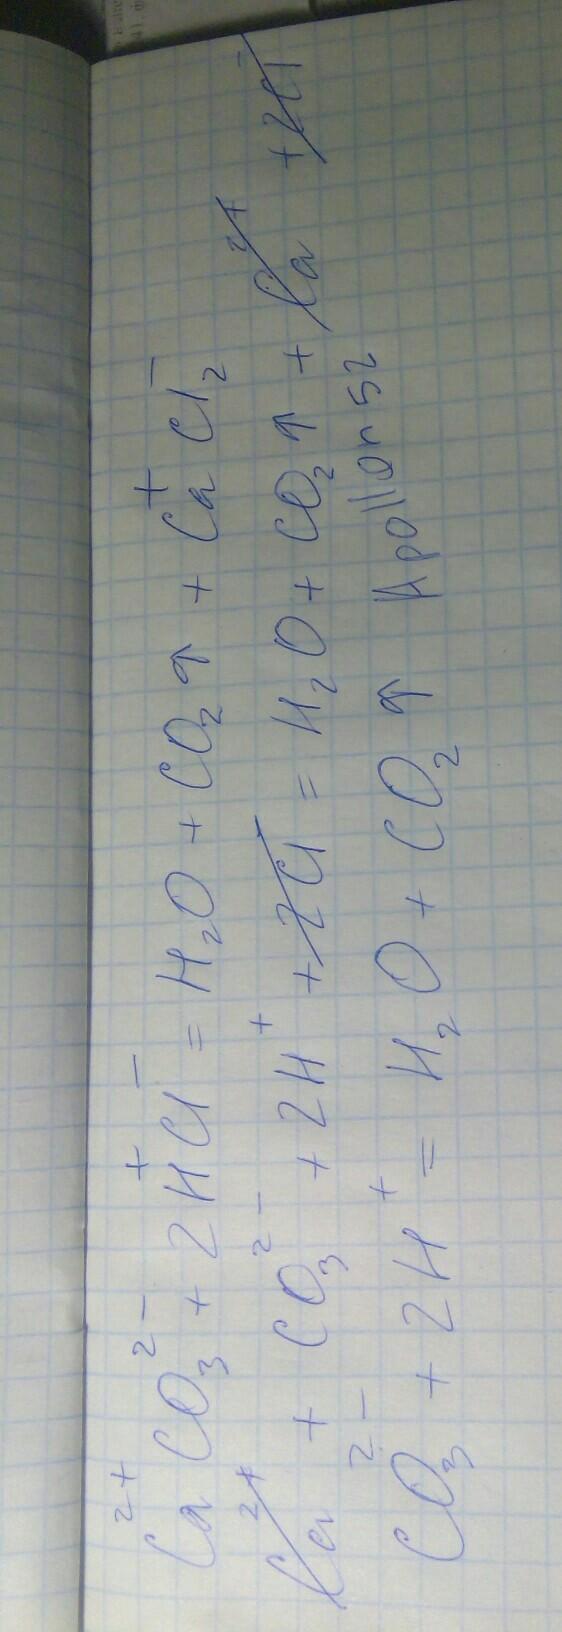 Ca²⁺CO₃²⁻ + 2H⁺Cl⁻ = H₂O + CO₂↑ + Ca⁺Cl₂⁻
Ca²⁺ + CO₃²⁻ + 2H⁺ + 2Cl⁻ = H₂O + CO₂↑ + Ca²⁺ + 2Cl⁻
CO₃²⁻ + 2H⁺ = H₂O + CO₂↑ Apollon52